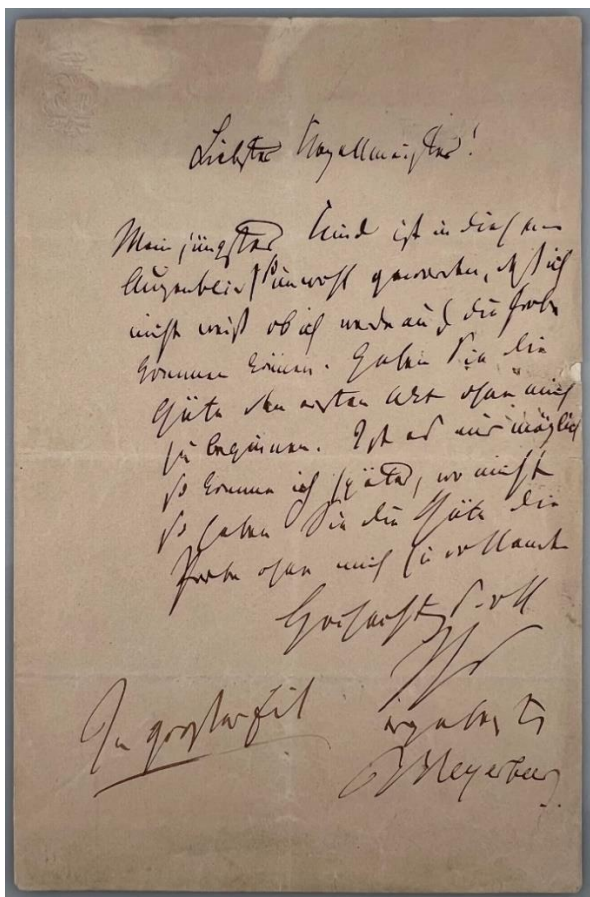 Liebster Kapellmeister!
Mein jüngstes Kind ist in diesem
Augenblick so unwohl geworden, daß ich
nicht weiß ob ich werde auf die Probe
kommen können. Haben Sie die
Güte den ersten Akt ohne mich
zu beginnen. Ist es mir möglich
so komme ich später, wo nicht
so haben Sie die Güte die
Probe ohne mich zu vollenden
Hochachtungsvoll
Ihr
ergebenster
Meyerbeer.
In großter Eil